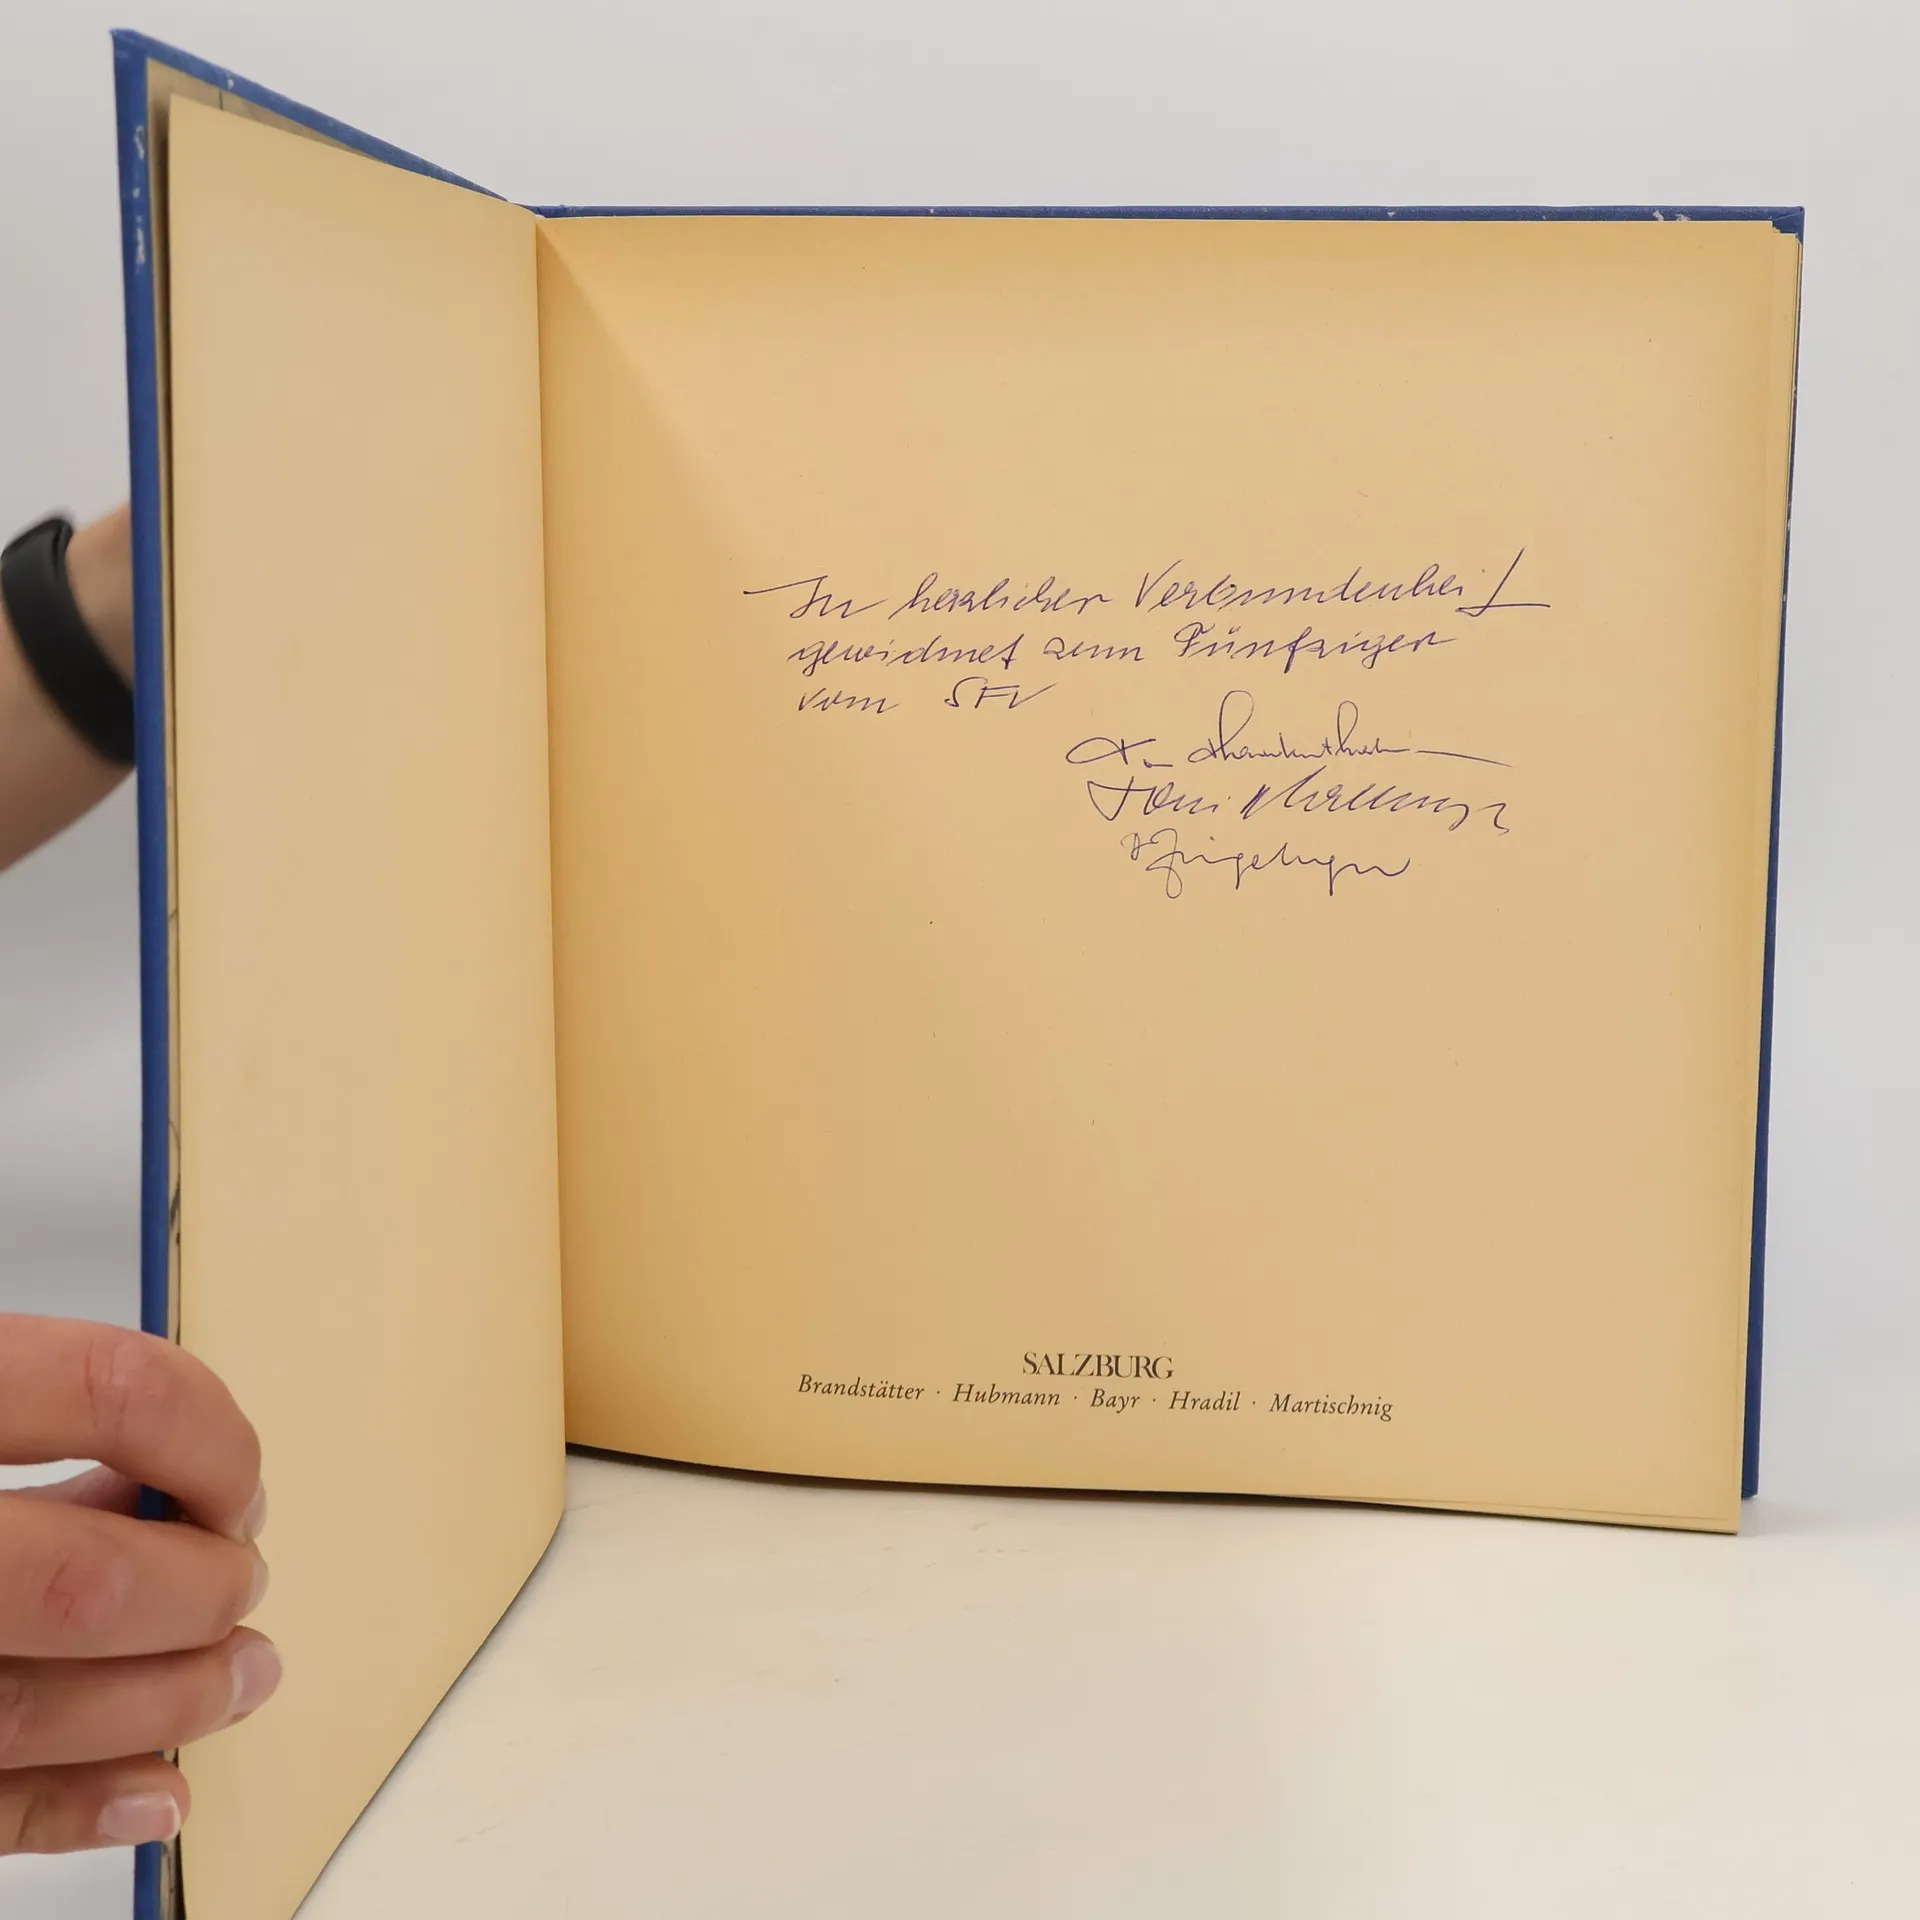 In herzlicher Verbundenheit
gewidmet zum Fünfziger
vom SFV
Toni
SALZBURG
Brandstätter · Hubmann · Bayr · Hradil · Martischnig